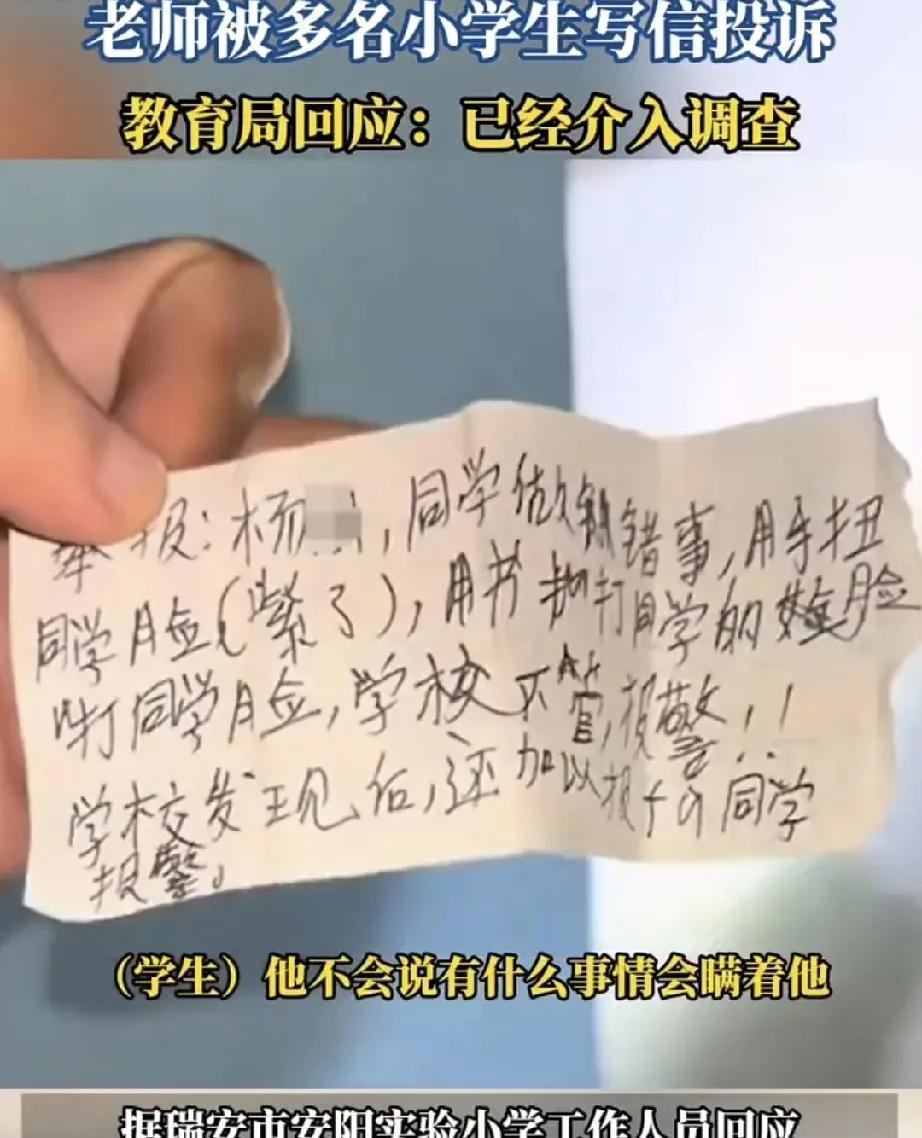 老师被多名小学生写信投诉
教育局回应：已经介入调查
举报：杨，同学做错事，用手扭
同学脸（紫了），用书打同学的脸
打同学脸，学校不管，报警！！
学校发现后，还加以同学
报警。
（学生）他不会说有什么事情会瞒着他
据瑞安市安阳实验小学工作人员回应